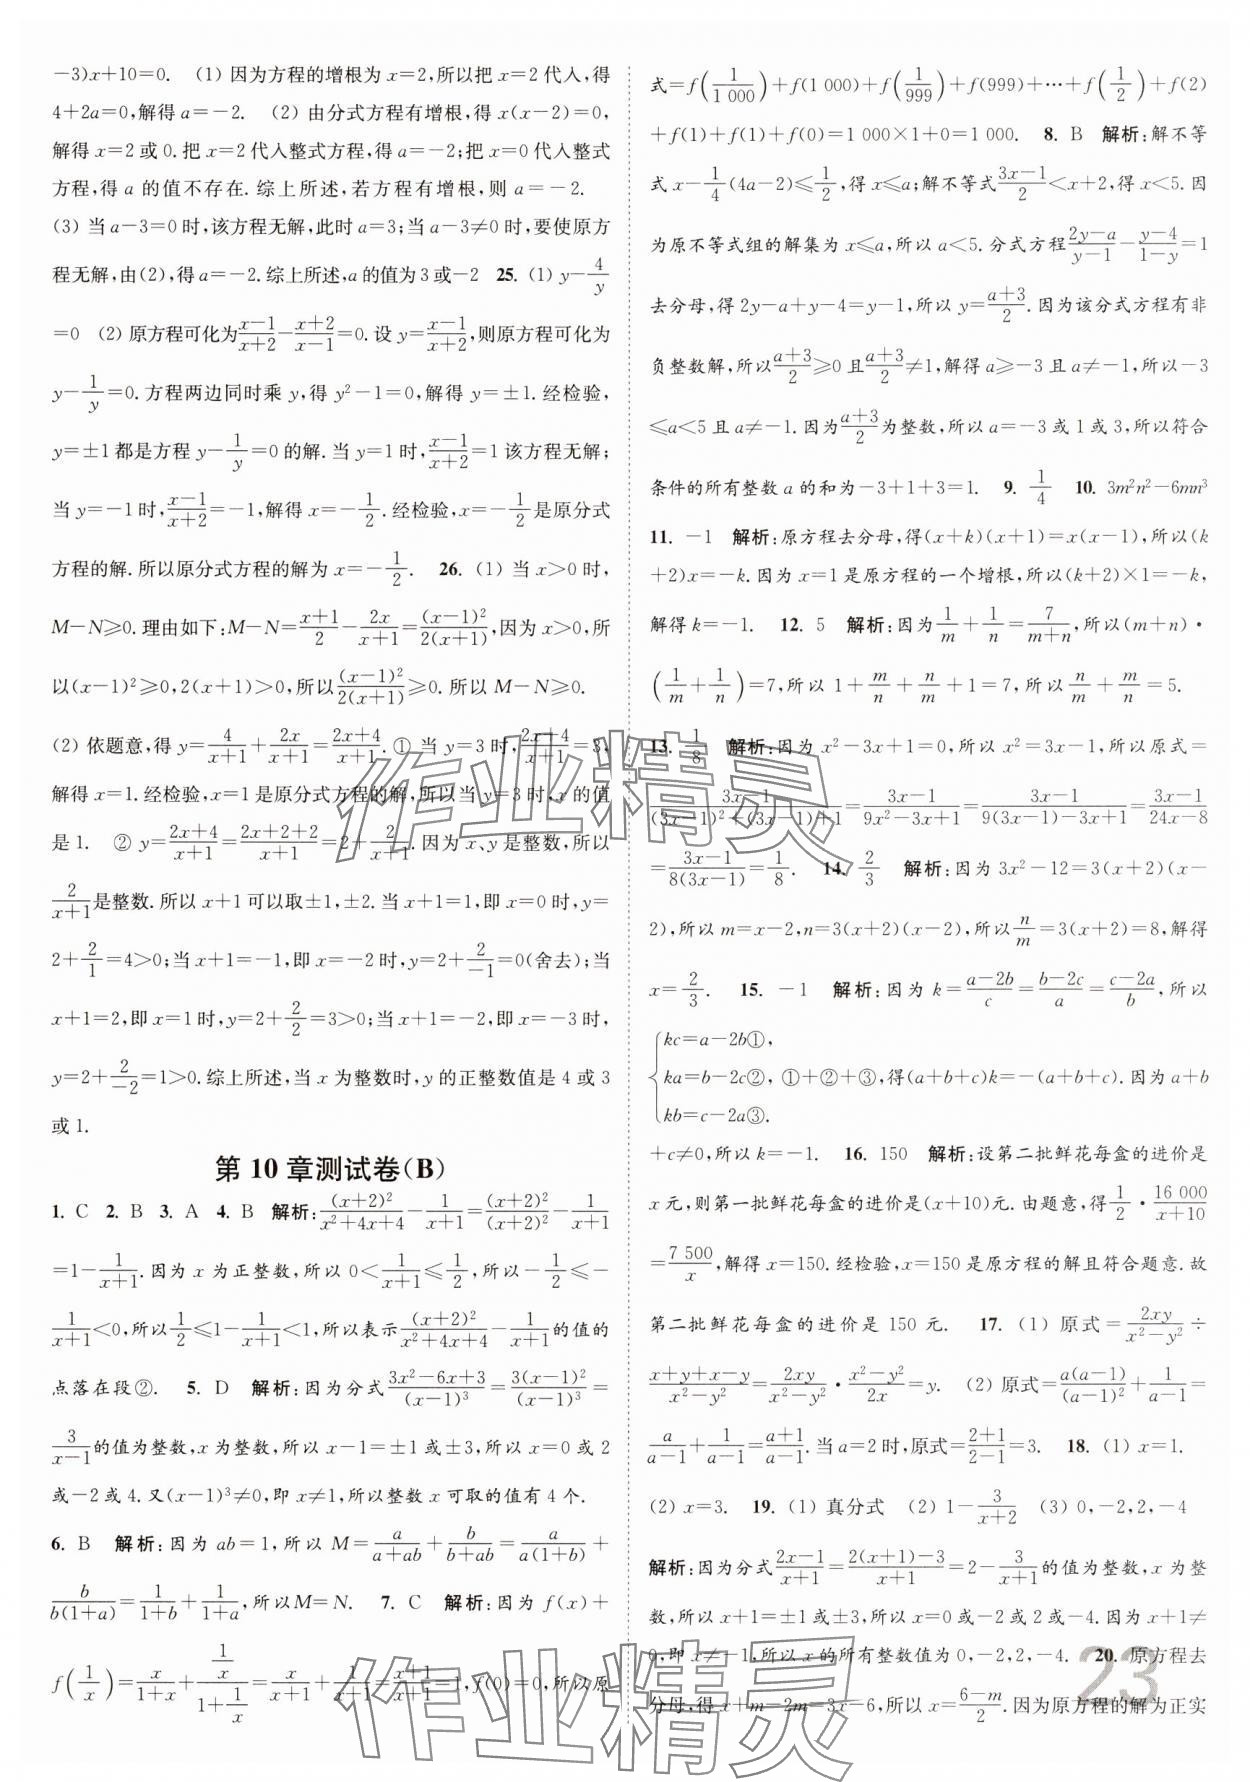 -3)x+10=0. (1) 因为方程的增根为 x=2,所以把 x=2 代入,得
4+2a=0,解得 a=-2. (2) 由分式方程有增根,得 x(x-2)=0,
解得 x=2 或 0.把 x=2 代入整式方程,得 a=-2;把 x=0 代入整式
方程,得 a 的值不存在.综上所述,若方程有增根,则 a=-2.
(3) 当 a-3=0 时,该方程无解,此时 a=3;当 a-3≠0 时,要使原方
程无解,由(2),得 a=-2.综上所述,a 的值为 3 或-2 25. (1) y-4/y
=0 (2) 原方程可化为(x-1)/(x+2)-(x+2)/(x-1)=0.设 y=(x-1)/(x+2),则原方程可化为
y-1/y=0.方程两边同时乘 y,得 y²-1=0,解得 y=±1.经检验,
y=±1 都是方程 y-1/y=0 的解.当 y=1 时,(x-1)/(x+2)=1 该方程无解;
当 y=-1 时,(x-1)/(x+2)=-1,解得 x=-1/2.经检验,x=-1/2 是原分式
方程的解.所以原分式方程的解为 x=-1/2. 26. (1) 当 x>0 时,
M-N≥0.理由如下:M-N=(x+1)/2-2x/(x+1)=(x-1)²/2(x+1),因为 x>0,所
以(x-1)²≥0,2(x+1)>0,所以(x-1)²/2(x+1)≥0.所以 M-N≥0.
(2) 依题意,得 y=4/(x+1)+2x/(x+1)=(2x+4)/(x+1).① 当 y=3 时,(2x+4)/(x+1)=3,
解得 x=1.经检验,x=1 是原分式方程的解,所以当 y=3 时,x 的值
是 1. ② y=(2x+4)/(x+1)=(2x+2+2)/(x+1)=2+2/(x+1).因为 x、y 是整数,所以
2/(x+1)是整数.所以 x+1 可以取±1,±2.当 x+1=1,即 x=0 时,y=
2+2/1=4>0;当 x+1=-1,即 x=-2 时,y=2+2/-1=0(舍去);当
x+1=2,即 x=1 时,y=2+2/2=3>0;当 x+1=-2,即 x=-3 时,
y=2+2/-2=1>0.综上所述,当 x 为整数时,y 的正整数值是 4 或 3
或 1.
第 10 章测试卷(B)
1. C 2. B 3. A 4. B 解析:(x+2)²/(x²+4x+4)-1/(x+1)=(x+2)²/(x+2)²-1/(x+1)
=1-1/(x+1).因为 x 为正整数,所以 0<1/(x+1)≤1/2,所以-1/2≤-
1/(x+1)<0,所以1/2≤1-1/(x+1)<1,所以表示(x+2)²/(x²+4x+4)-1/(x+1)的值的
点落在段②. 5. D 解析:因为分式(3x²-6x+3)/(x-1)³=3(x-1)²/(x-1)³=
3/(x-1)的值为整数,x 为整数,所以 x-1=±1 或±3,所以 x=0 或 2
或-2 或 4.又(x-1)³≠0,即 x≠1,所以整数 x 可取的值有 4 个.
6. B 解析:因为 ab=1,所以 M=a/(a+ab)+b/(b+ab)=a/a(1+b)+
b/b(1+a)=1/(1+b)+1/(1+a),所以M=N. 7. C 解析:因为 f(x)+
f(1/x)=x/(1+x)+(1/x)/(1+1/x)=x/(x+1)+1/(x+1)=(x+1)/(x+1)=1,f(0)=0,所以原
式=f(1/1 000)+f(1 000)+f(1/999)+f(999)+…+f(1/2)+f(2)
+f(1)+f(1)+f(0)=1 000×1+0=1 000. 8. B 解析:解不等
式 x-1/4(4a-2)≤1/2,得 x≤a;解不等式(3x-1)/2<x+2,得 x<5.因
为原不等式组的解集为 x≤a,所以 a<5.分式方程(2y-a)/(y-1)-(y-4)/(1-y)=1
去分母,得 2y-a+y-4=y-1,所以 y=(a+3)/2.因为该分式方程有非
负整数解,所以(a+3)/2≥0 且(a+3)/2≠1,解得 a≥-3 且 a≠-1,所以-3
≤a<5 且 a≠-1.因为(a+3)/2为整数,所以 a=-3 或 1 或 3,所以符合
条件的所有整数 a 的和为-3+1+3=1. 9. 1/4 10. 3m²n²-6mn³
11. -1 解析:原方程去分母,得(x+k)(x+1)=x(x-1),所以(k
+2)x=-k.因为 x=1 是原方程的一个增根,所以(k+2)×1=-k,
解得 k=-1. 12. 5 解析:因为1/m+1/n=7/(m+n),所以(m+n)·
(1/m+1/n)=7,所以 1+m/n+n/m+1=7,所以n/m+m/n=5.
13. 1/8 解析:因为 x²-3x+1=0,所以 x²=3x-1,所以原式=
(3x-1)/((3x-1)²+(3x-1)+1)=(3x-1)/(9x²-3x+1)=(3x-1)/(9(3x-1)-3x+1)=(3x-1)/(24x-8)
=(3x-1)/8(3x-1)=1/8. 14. 2/3 解析:因为 3x²-12=3(x+2)(x-
2),所以 m=x-2,n=3(x+2)(x-2),所以n/m=3(x+2)=8,解得
x=2/3. 15. -1 解析:因为 k=(a-2b)/c=(b-2c)/a=(c-2a)/b,所以
kc=a-2b①,
ka=b-2c②, ①+②+③,得(a+b+c)k=-(a+b+c).因为 a+b
kb=c-2a③.
+c≠0,所以 k=-1. 16. 150 解析:设第二批鲜花每盒的进价是
x 元,则第一批鲜花每盒的进价是(x+10)元.由题意,得1/2·16 000/(x+10)
=7 500/x,解得 x=150.经检验,x=150 是原方程的解且符合题意.故
第二批鲜花每盒的进价是 150 元. 17. (1) 原式=2xy/(x²-y²)÷
(x+y+x-y)/(x²-y²)=2xy/(x²-y²)·(x²-y²)/2x=y. (2) 原式=a(a-1)/(a-1)²+1/(a-1)=
a/(a-1)+1/(a-1)=(a+1)/(a-1).当 a=2 时,原式=(2+1)/(2-1)=3. 18. (1) x=1.
(2) x=3. 19. (1) 真分式 (2) 1-3/(x+2) (3) 0,-2,2,-4
解析:因为分式(2x-1)/(x+1)=(2(x+1)-3)/(x+1)=2-3/(x+1)的值为整数,x 为整
数,所以 x+1=±1 或±3,所以 x=0 或-2 或 2 或-4.因为 x+1≠
0,即 x≠-1,所以 x 的所有整数值为 0,-2,2,-4. 20. 原方程去
分母,得 x+m-2m=3x-6,所以 x=(6-m)/2.因为原方程的解为正实
23
作业精灵
作业精灵